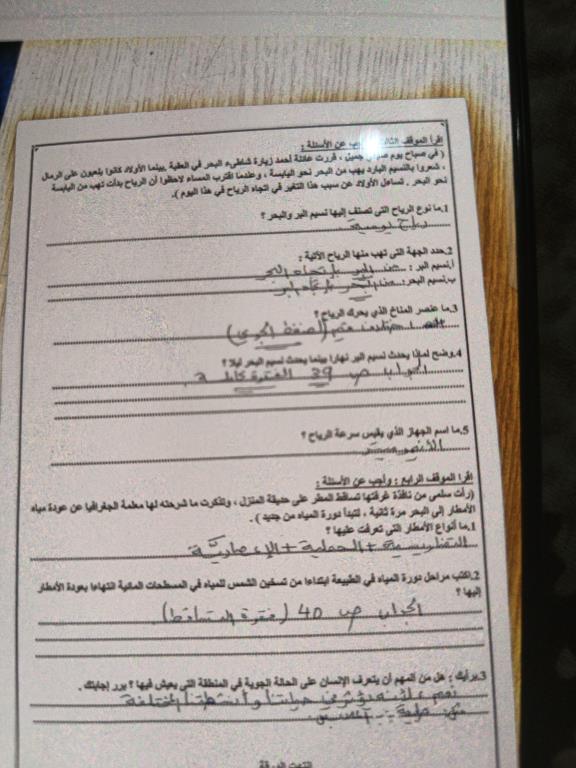 اقرأ الموقف الثالث وأجب عن الأسئلة :
( في صباح يوم صيفي جميل ، قررت عائلة أحمد زيارة شاطىء البحر في العقبة ،بينما الأولاد كانوا يلعبون على الرمال
، شعروا بالنسيم البارد يهب من البحر نحو اليابسة ، وعندما اقترب المساء لاحظوا أن الرياح بدأت تهب من اليابسة
نحو البحر . تساءل الأولاد عن سبب هذا التغير في اتجاه الرياح في هذا اليوم ).
1.ما نوع الرياح التى تصنف إليها نسيم البر والبحر ؟
رياح يومية
2.حدد الجهة التى تهب منها الرياح الآتية :
أ.نسيم البر : من البر باتجاه البحر
ب.نسيم البحر: من البحر باتجاه البر
3.ما عنصر المناخ الذي يحرك الرياح ؟
(الضغط الجوي)
4.وضح لماذا يحدث نسيم البر نهارا بينما يحدث نسيم البحر ليلا ؟
الجواب ص 39 الفقرة كاملة .
5.ما اسم الجهاز الذي يقيس سرعة الرياح ؟
اقرا الموقف الرابع : وأجب عن الأسئلة :
(رأت سلمى من نافذة غرفتها تساقط المطر على حديقة المنزل ، وتذكرت ما شرحته لها معلمة الجغرافيا عن عودة مياه
الأمطار إلى البحر مرة ثانية ، لتبدأ دورة المياه من جديد ) .
1.ما أنواع الأمطار التى تعرفت عليها ؟
التضاريسية + الحملية + الإعصارية
2.اكتب مراحل دورة المياه في الطبيعة ابتداءا من تسخين الشمس للمياه في المسطحات المائية انتهاءا بعودة الأمطار
إليها ؟
الجواب ص 40 (فقرة التساقط)
3.برأيك : هل من المهم أن يتعرف الإنسان على الحالة الجوية في المنطقة التي يعيش فيها ؟ برر إجابتك .
نعم ، لأنه يؤثر في حياتنا وأنشطتنا المختلفة
انتهت الورقة